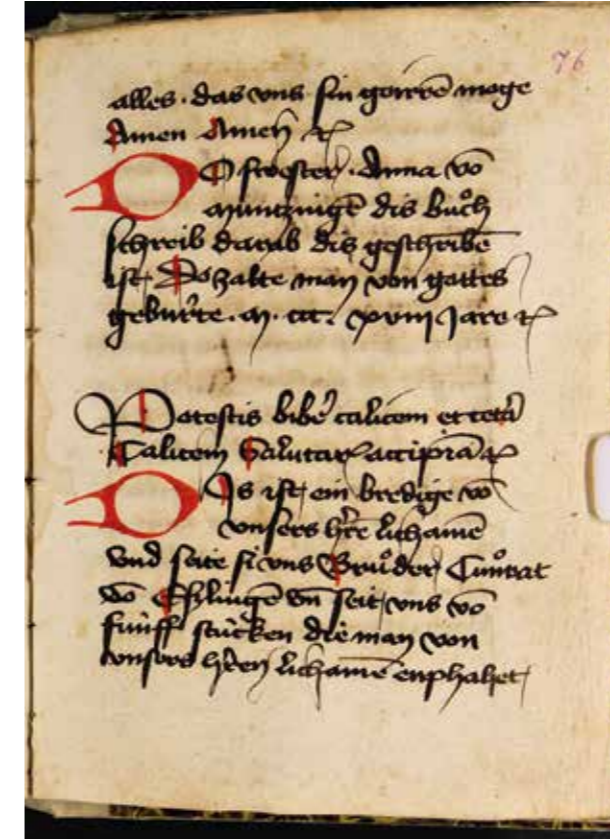 76
alles · das vns sin gonde moge
Amen Amen ꝛc
DO swester · Anna võ
Muntzingẽ dis bůch
schreib darab dis geschribẽ
ist / Do zalte man von gottes
gebúrte · M · ccc · xviij Jare ꝛc
Potestis biberẽ calicem et ceterã
Calicem Salutarꝭ accipiã ꝛc
DIs ist ein bredige võ
vnsers h̃rẽ lichamẽ
vnd seite si vns Brůder Cůnrat
võ Eszlingẽ vñ seit vns võ
fúnff stúcken die man von
vnsers h̃ren lichamẽ enphahet /